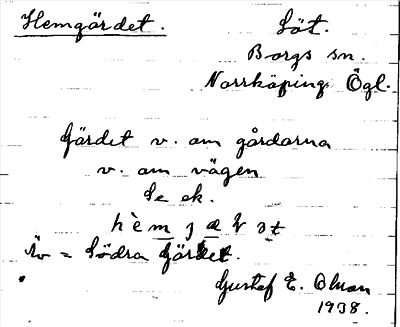 Hemgärdet. Löt.
Borgs sn.
Norrköping Ögl.
Gärdet v. om gårdarna
v. om vägen
Se ek.
Äv = Södra Gärdet.
Gustaf E. Olson
1938.